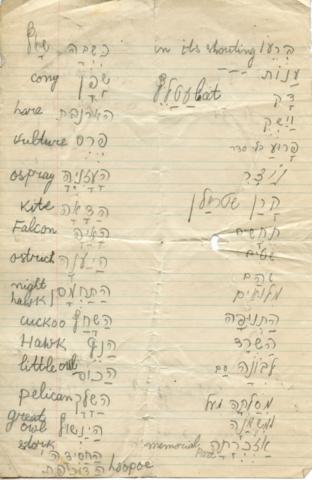 כשבה שאף
cony שפן
hare הארנבת
vulture פרס
ospray העזניה
kite הדאה
Falcon האיה
ostrich היענה
night hawk התחמס
cuckoo השחף
Hawk הנץ
little owl הכוס
pelican השלך
great owl הינשוף
stork החסידה
hoopoe הדוכיפת
in its shouting ברעו
ענות
דק
bat עטלף
וישק
פרוע
ויצר
קרן
תחשים
שטים
שהם
מלואים
התנופה
השרד
לבונה
memorial Part אזכרתה